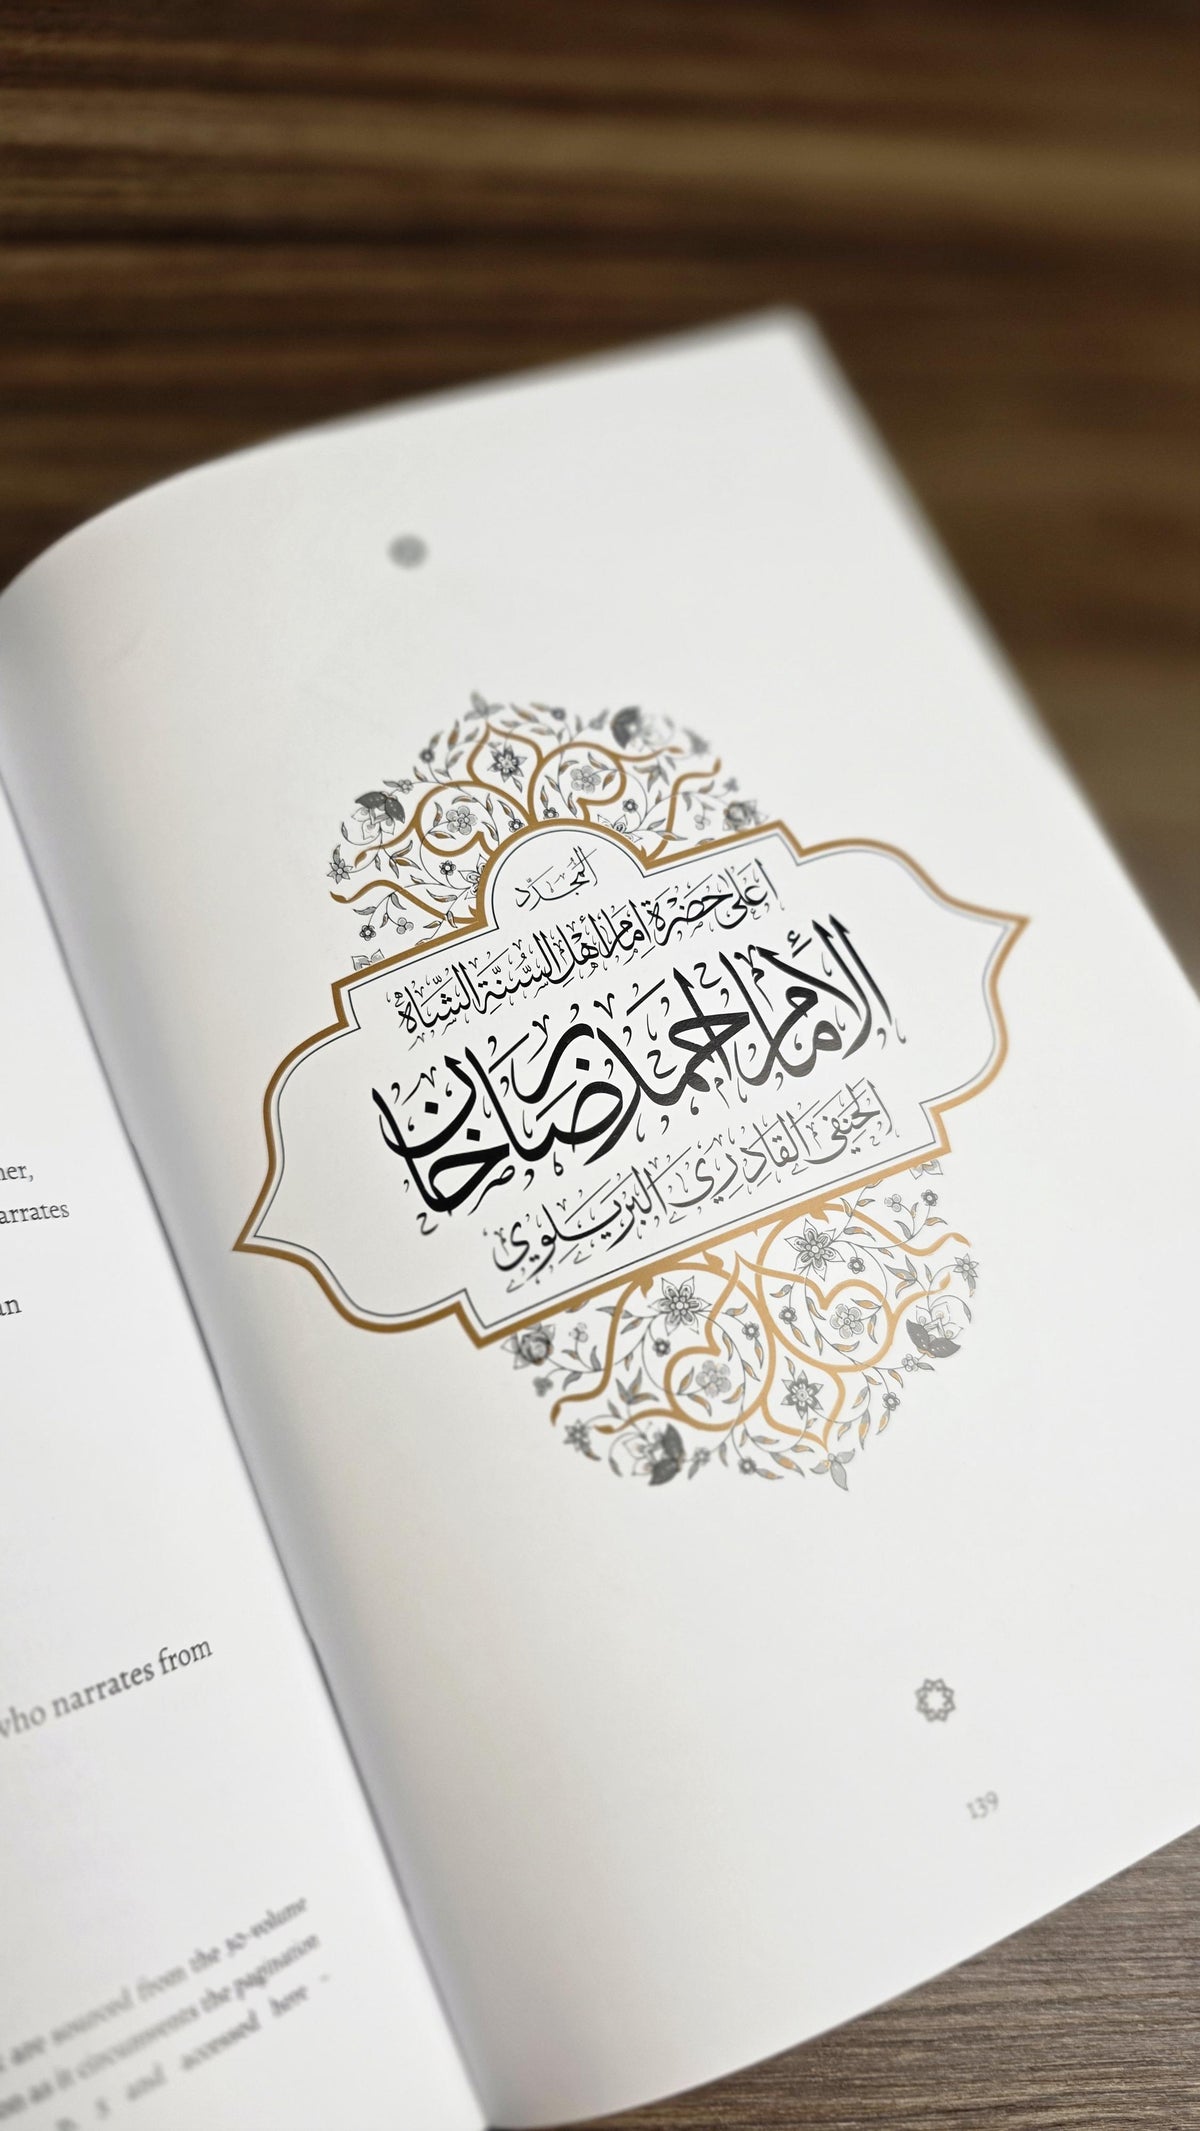 her,
arrates
an
who narrates from
are sourced from the 30-volume
as it circumvents the pagination
5 and accessed here -
المُجدِّد
اعلى حضرة امام أهل السُّنّة الشّاه
الإمام أحمد رضا خان
الحنفي القادري البريلوي
139